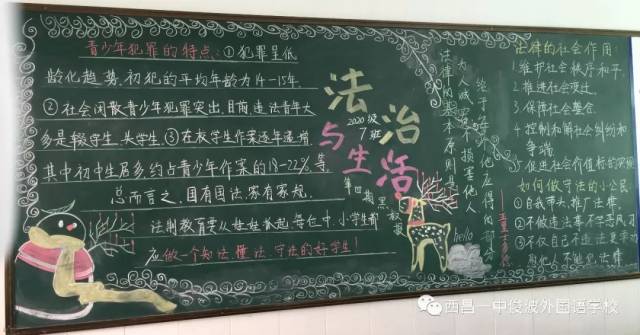 青少年犯罪的特点:①犯罪呈低
龄化趋势,初犯的平均年龄为14-15年.
②社会闲散青少年犯罪突出,目前,违法青年大
多是辍学生、失学生.③在校学生作案逐年递增,
其中初中生居多,约占青少年作案的18-22%等.
总而言之,国有国法,家有家规.
法制教育要从娃娃抓起,每位中、小学生都
应做一个知法、懂法、守法的好学生!
法治
与生活
2020级
7班
第四期黑板报
法律的基本原则是:
为人诚实,不损害他人
给予每个人他应得的部分
hello
法律的社会作用:
1.维护社会秩序和平.
2.推进社会变迁.
3.保障社会整合.
4.控制和解社会纠纷和
争端.
5.促进社会价值标的实现
如何做守法的小公民
①自我带头,推广法律.
②不做违法事,不学恶风习
③不仅自己不违法更要劝
西昌一中俊波外国语学校